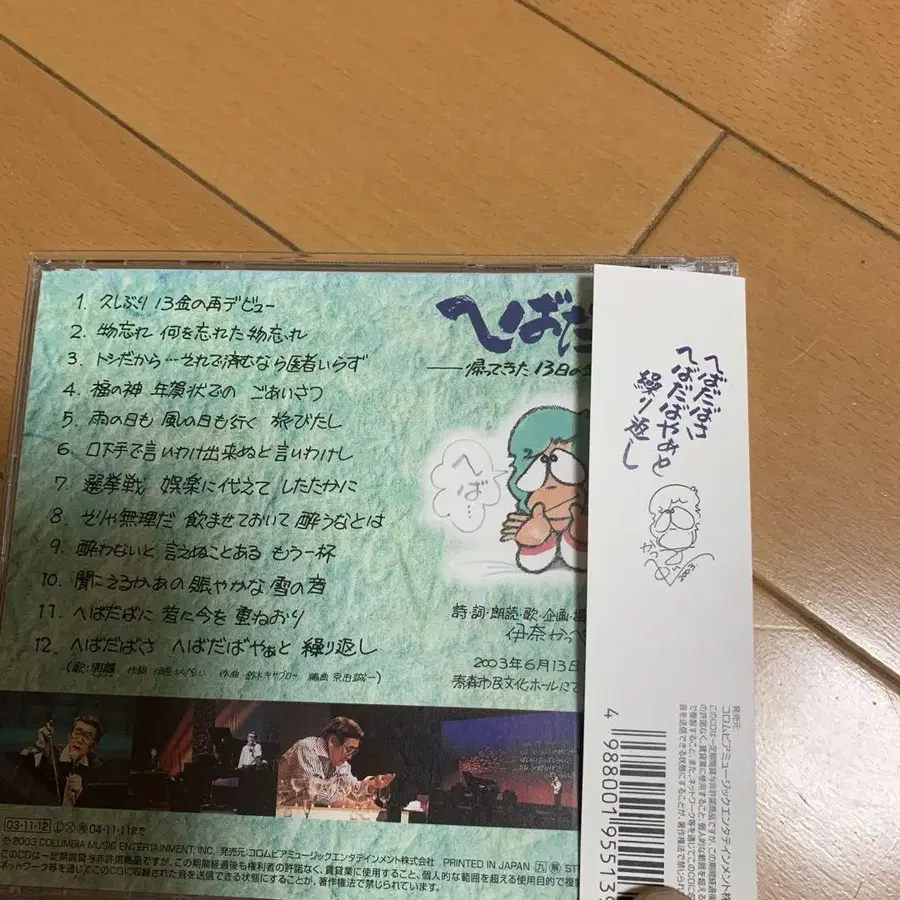 1. 久しぶり 13金の再デビュー
2. 物忘れ 何を忘れた 物忘れ
3. トシだから…それで済むなら医者いらず
4. 福の神 年賀状での ごあいさつ
5. 雨の日も 風の日も行く 旅びたし
6. 口下手で言いわけ出来ぬと言いわけし
7. 選挙戦 娯楽に代えて したたかに
8. そりゃ無理だ 飲ませておいて 酔うなとは
9. 酔わないと 言えぬことある もう一杯
10. 聞こえるかあの 賑やかな 雪の音
11. へばだばに 昔に今を 重ねおり
12. へばだばさ へばだばやぁと 繰り返し
(歌: 作詞 伊奈かっぺい 作曲 鈴木キサブロー 編曲 京田誠一)
へばだ
帰ってきた 13日の
へば…
詩・詞・朗読・歌・企画・
伊奈かっぺ
2003年6月13日
青森市民文化ホールにて
へばだばさ
へばだばやぁと
繰り返し
03-11-12 04・11・11まで
℗2003 COLUMBIA MUSIC ENTERTAINMENT, INC. 発売元:コロムビアミュージックエンタテインメント株式会社 PRINTED IN JAPAN
このCDは一定期間貸与非許諾商品ですが、この期間経過後も権利者の許諾なく、賃貸業に使用すること、個人的な範囲を超える使用目的で複
ネットワーク等を通じてこのCDに収録された音を送信できる状態にすることが、著作権法で禁じられています。
発売元:
コロムビアミュージックエンタテインメント株
4 988001 95513